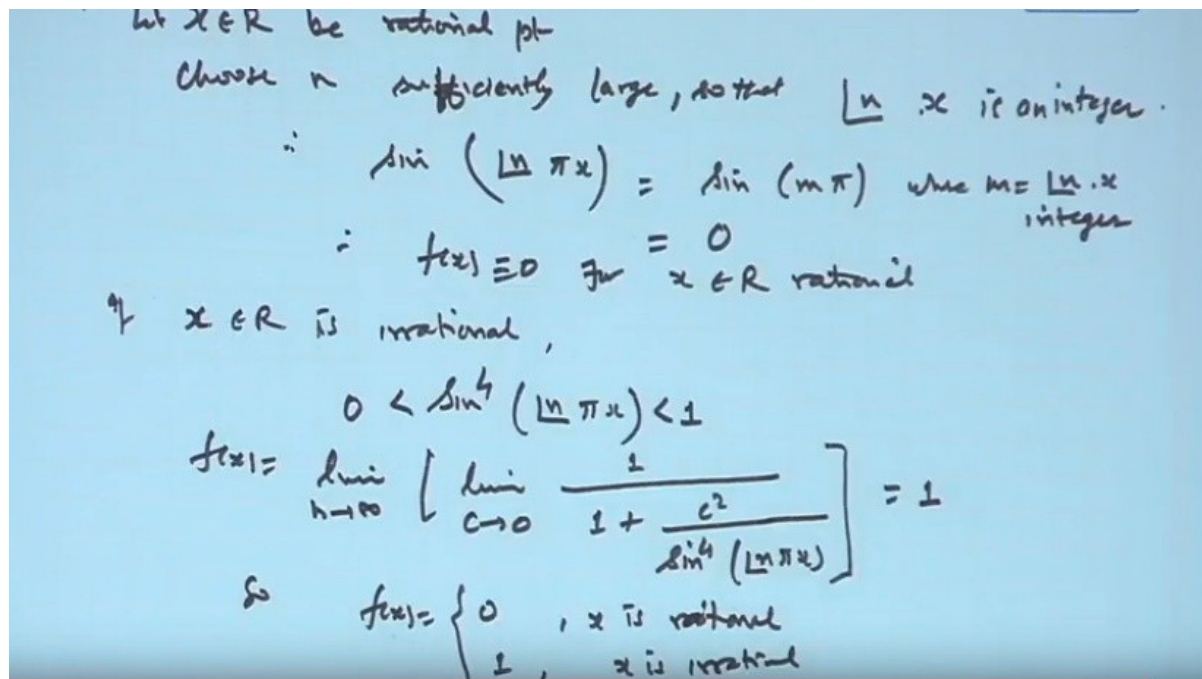 Let x ∈ R be rational pt
Choose n sufficiently large, so that ⌊n .x is an integer.
∴ sin (⌊n πx) = sin (mπ) where m = ⌊n .x
integer
= 0
∴ f(x) ≡ 0 for x ∈ R rational
If x ∈ R is irrational,
0 < sin⁴ (⌊n πx) < 1
f(x) = lim n→∞ [ lim c→0 1 / (1 + c² / sin⁴ (⌊n πx)) ] = 1
So f(x) = { 0 , x is rational
1 , x is irrational